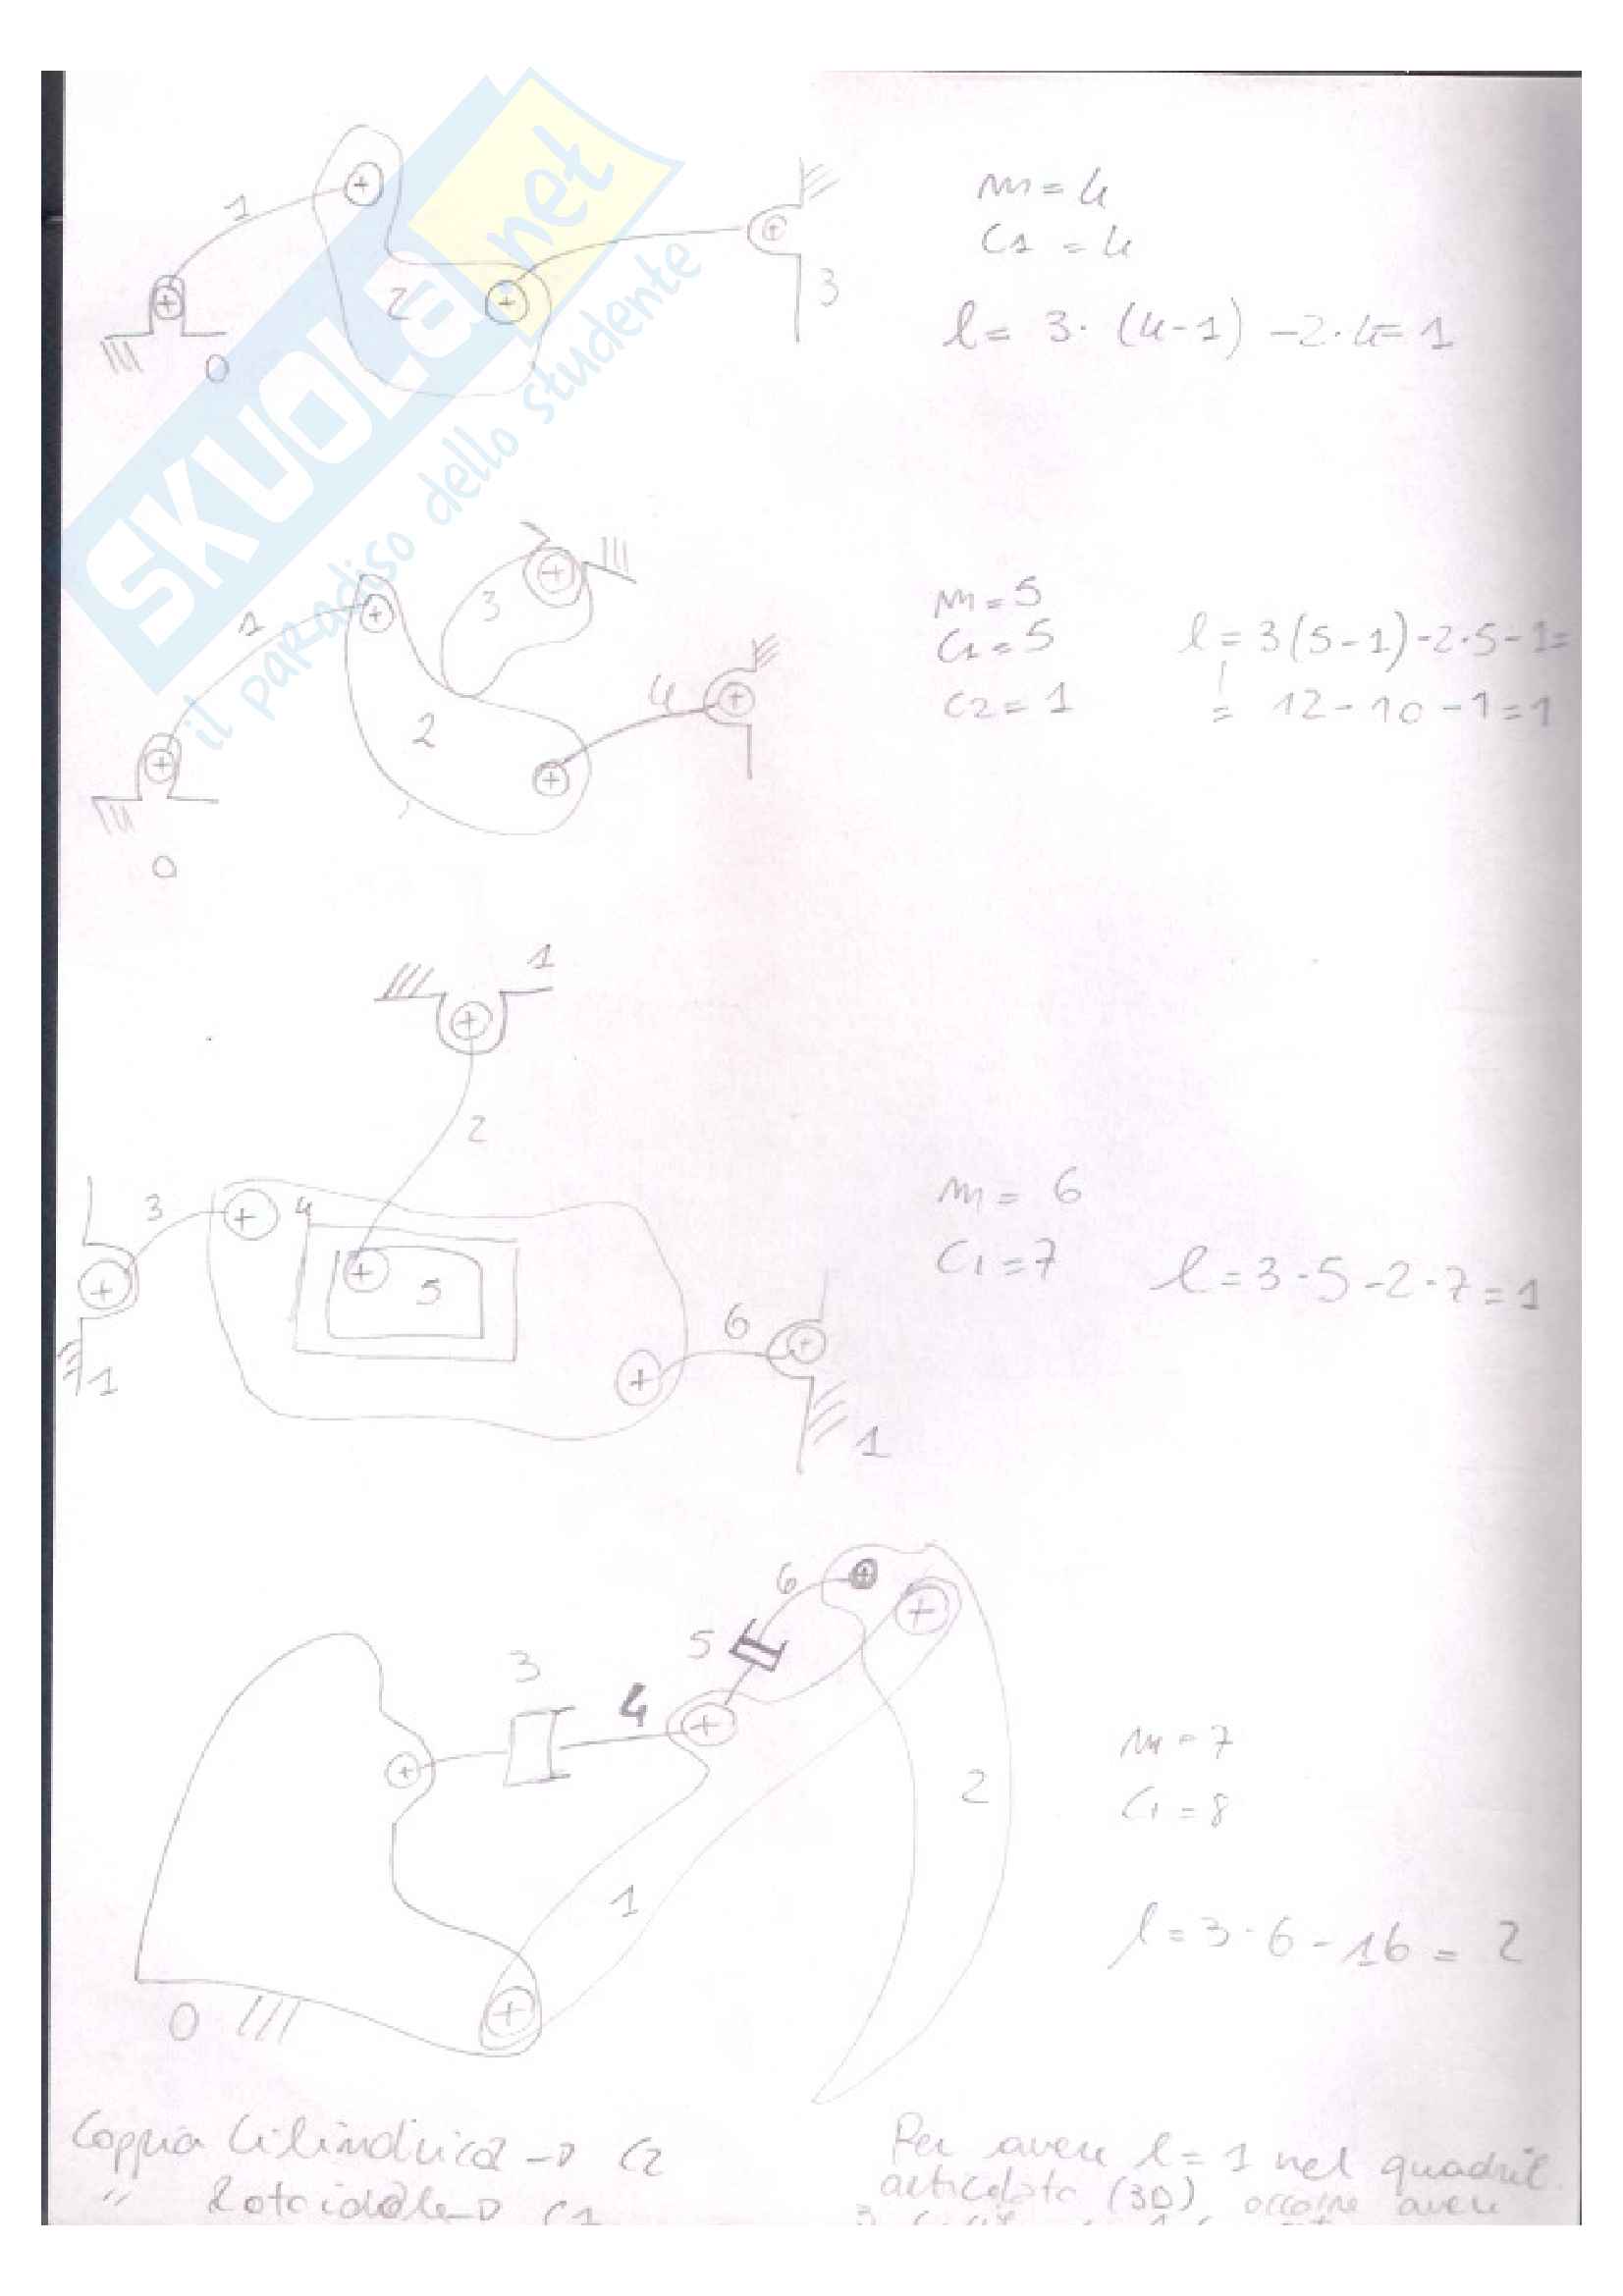 SKUOLA.net
il paradiso dello studente
1
2
0
3
m = 4
C1 = 4
l = 3 · (4-1) -2·4= 1
1
2
3
4
0
m = 5
C1 = 5
C2 = 1
l = 3(5-1)-2·5-1=
= 12-10-1=1
1
2
3
4
5
6
1
1
m = 6
C1 = 7
l = 3·5-2·7=1
6
5
3
4
2
1
0
m = 7
C1 = 8
l = 3·6-16 = 2
Coppia Cilindrica → C2
" Rotoidale → C1
Per avere l = 1 nel quadril.
articolato (3D) occorre avere